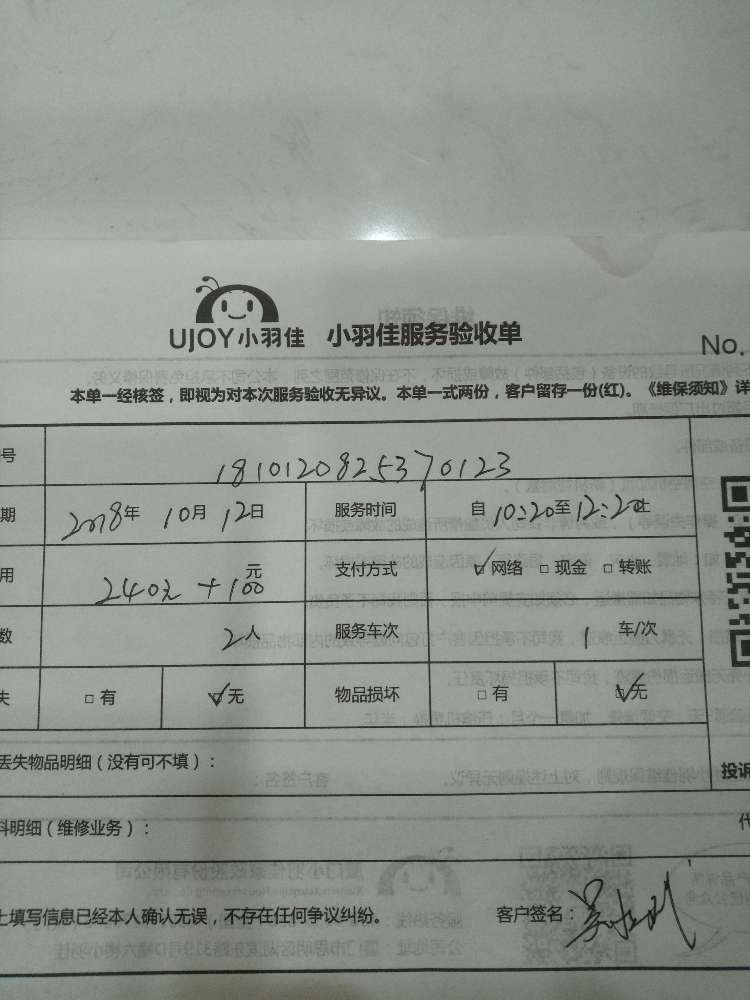 UJOY小羽佳 小羽佳服务验收单
No.
本单一经核签，即视为对本次服务验收无异议。本单一式两份，客户留存一份(红)。《维保须知》详
号 1810120825370123
期 2018年 10月 12日 服务时间 自10:20至12:20止
用 240元+100元 支付方式 ☑网络 □现金 □转账
数 2人 服务车次 1 车/次
失 □有 ☑无 物品损坏 □有 ☑无
丢失物品明细（没有可不填）：
投诉
料明细（维修业务）：
上填写信息已经本人确认无误，不存在任何争议纠纷。 客户签名：